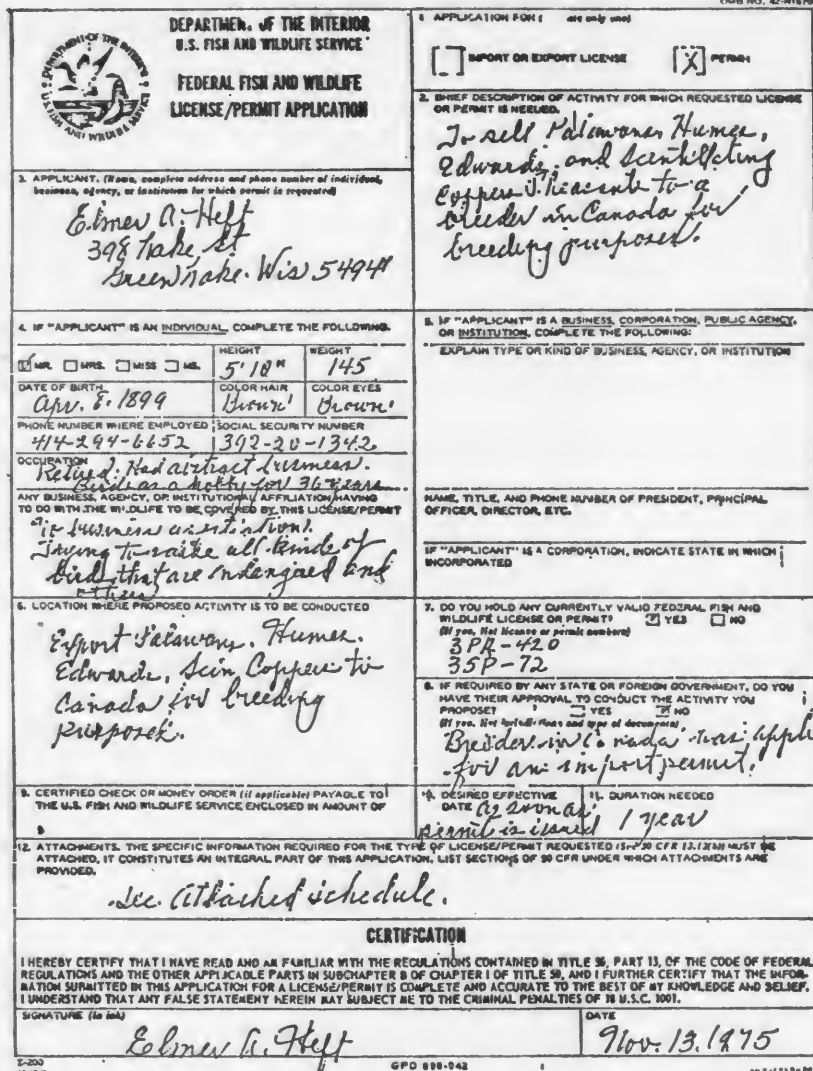 OMB NO. 42-R1670
DEPARTMEN. OF THE INTERIOR
U.S. FISH AND WILDLIFE SERVICE
FEDERAL FISH AND WILDLIFE
LICENSE/PERMIT APPLICATION
DEPARTMENT OF THE INTERIOR
U.S. FISH AND WILDLIFE SERVICE
1. APPLICATION FOR ( only one)
IMPORT OR EXPORT LICENSE
X PERMIT
2. BRIEF DESCRIPTION OF ACTIVITY FOR WHICH REQUESTED LICENSE
OR PERMIT IS NEEDED.
To sell Palawans, Humes,
Edwards, and Scintillating
Coppers Pheasants to a
breeder in Canada for
breeding purposes.
3. APPLICANT. (Name, complete address and phone number of individual,
business, agency, or institution for which permit is requested)
Elmer A. Heft
398 Lake St
Green Lake. Wis 5494
4. IF "APPLICANT" IS AN INDIVIDUAL, COMPLETE THE FOLLOWING.
MR. MRS. MISS MS.
HEIGHT
5'10"
WEIGHT
145
DATE OF BIRTH
Apr. 8. 1899
COLOR HAIR
Brown
COLOR EYES
Brown
PHONE NUMBER WHERE EMPLOYED
414-294-6652
SOCIAL SECURITY NUMBER
392-20-1342
OCCUPATION
Retired. Had abstract business.
Birds as a hobby for 36 years
ANY BUSINESS, AGENCY, OR INSTITUTIONAL AFFILIATION HAVING
TO DO WITH THE WILDLIFE TO BE COVERED BY THIS LICENSE/PERMIT
business
Trying to raise all kinds of
birds that are endangered and
others
5. IF "APPLICANT" IS A BUSINESS, CORPORATION, PUBLIC AGENCY,
OR INSTITUTION, COMPLETE THE FOLLOWING:
EXPLAIN TYPE OR KIND OF BUSINESS, AGENCY, OR INSTITUTION
NAME, TITLE, AND PHONE NUMBER OF PRESIDENT, PRINCIPAL
OFFICER, DIRECTOR, ETC.
IF "APPLICANT" IS A CORPORATION, INDICATE STATE IN WHICH
INCORPORATED
6. LOCATION WHERE PROPOSED ACTIVITY IS TO BE CONDUCTED
Export Palawans. Humes.
Edwards, Scin. Coppers to
Canada for breeding
purposes.
7. DO YOU HOLD ANY CURRENTLY VALID FEDERAL FISH AND
WILDLIFE LICENSE OR PERMIT? YES NO
(If yes, list license or permit numbers)
3PR-420
35P-72
8. IF REQUIRED BY ANY STATE OR FOREIGN GOVERNMENT, DO YOU
HAVE THEIR APPROVAL TO CONDUCT THE ACTIVITY YOU
PROPOSE? YES NO
(If yes, list jurisdictions and type of documents)
Breeder in Canada has appli
for an import permit.
9. CERTIFIED CHECK OR MONEY ORDER (if applicable) PAYABLE TO
THE U.S. FISH AND WILDLIFE SERVICE ENCLOSED IN AMOUNT OF
$
10. DESIRED EFFECTIVE
DATE as soon as
permit is issued
11. DURATION NEEDED
1 year
12. ATTACHMENTS. THE SPECIFIC INFORMATION REQUIRED FOR THE TYPE OF LICENSE/PERMIT REQUESTED (See 50 CFR 13.12(b)) MUST BE
ATTACHED, IT CONSTITUTES AN INTEGRAL PART OF THIS APPLICATION. LIST SECTIONS OF 50 CFR UNDER WHICH ATTACHMENTS ARE
PROVIDED.
See Attached schedule.
CERTIFICATION
I HEREBY CERTIFY THAT I HAVE READ AND AM FAMILIAR WITH THE REGULATIONS CONTAINED IN TITLE 50, PART 13, OF THE CODE OF FEDERAL
REGULATIONS AND THE OTHER APPLICABLE PARTS IN SUBCHAPTER B OF CHAPTER I OF TITLE 50, AND I FURTHER CERTIFY THAT THE INFOR-
MATION SUBMITTED IN THIS APPLICATION FOR A LICENSE/PERMIT IS COMPLETE AND ACCURATE TO THE BEST OF MY KNOWLEDGE AND BELIEF.
I UNDERSTAND THAT ANY FALSE STATEMENT HEREIN MAY SUBJECT ME TO THE CRIMINAL PENALTIES OF 18 U.S.C. 1001.
SIGNATURE (In ink)
Elmer A. Heft
DATE
Nov. 13. 1975
3-200
GPO 898-942